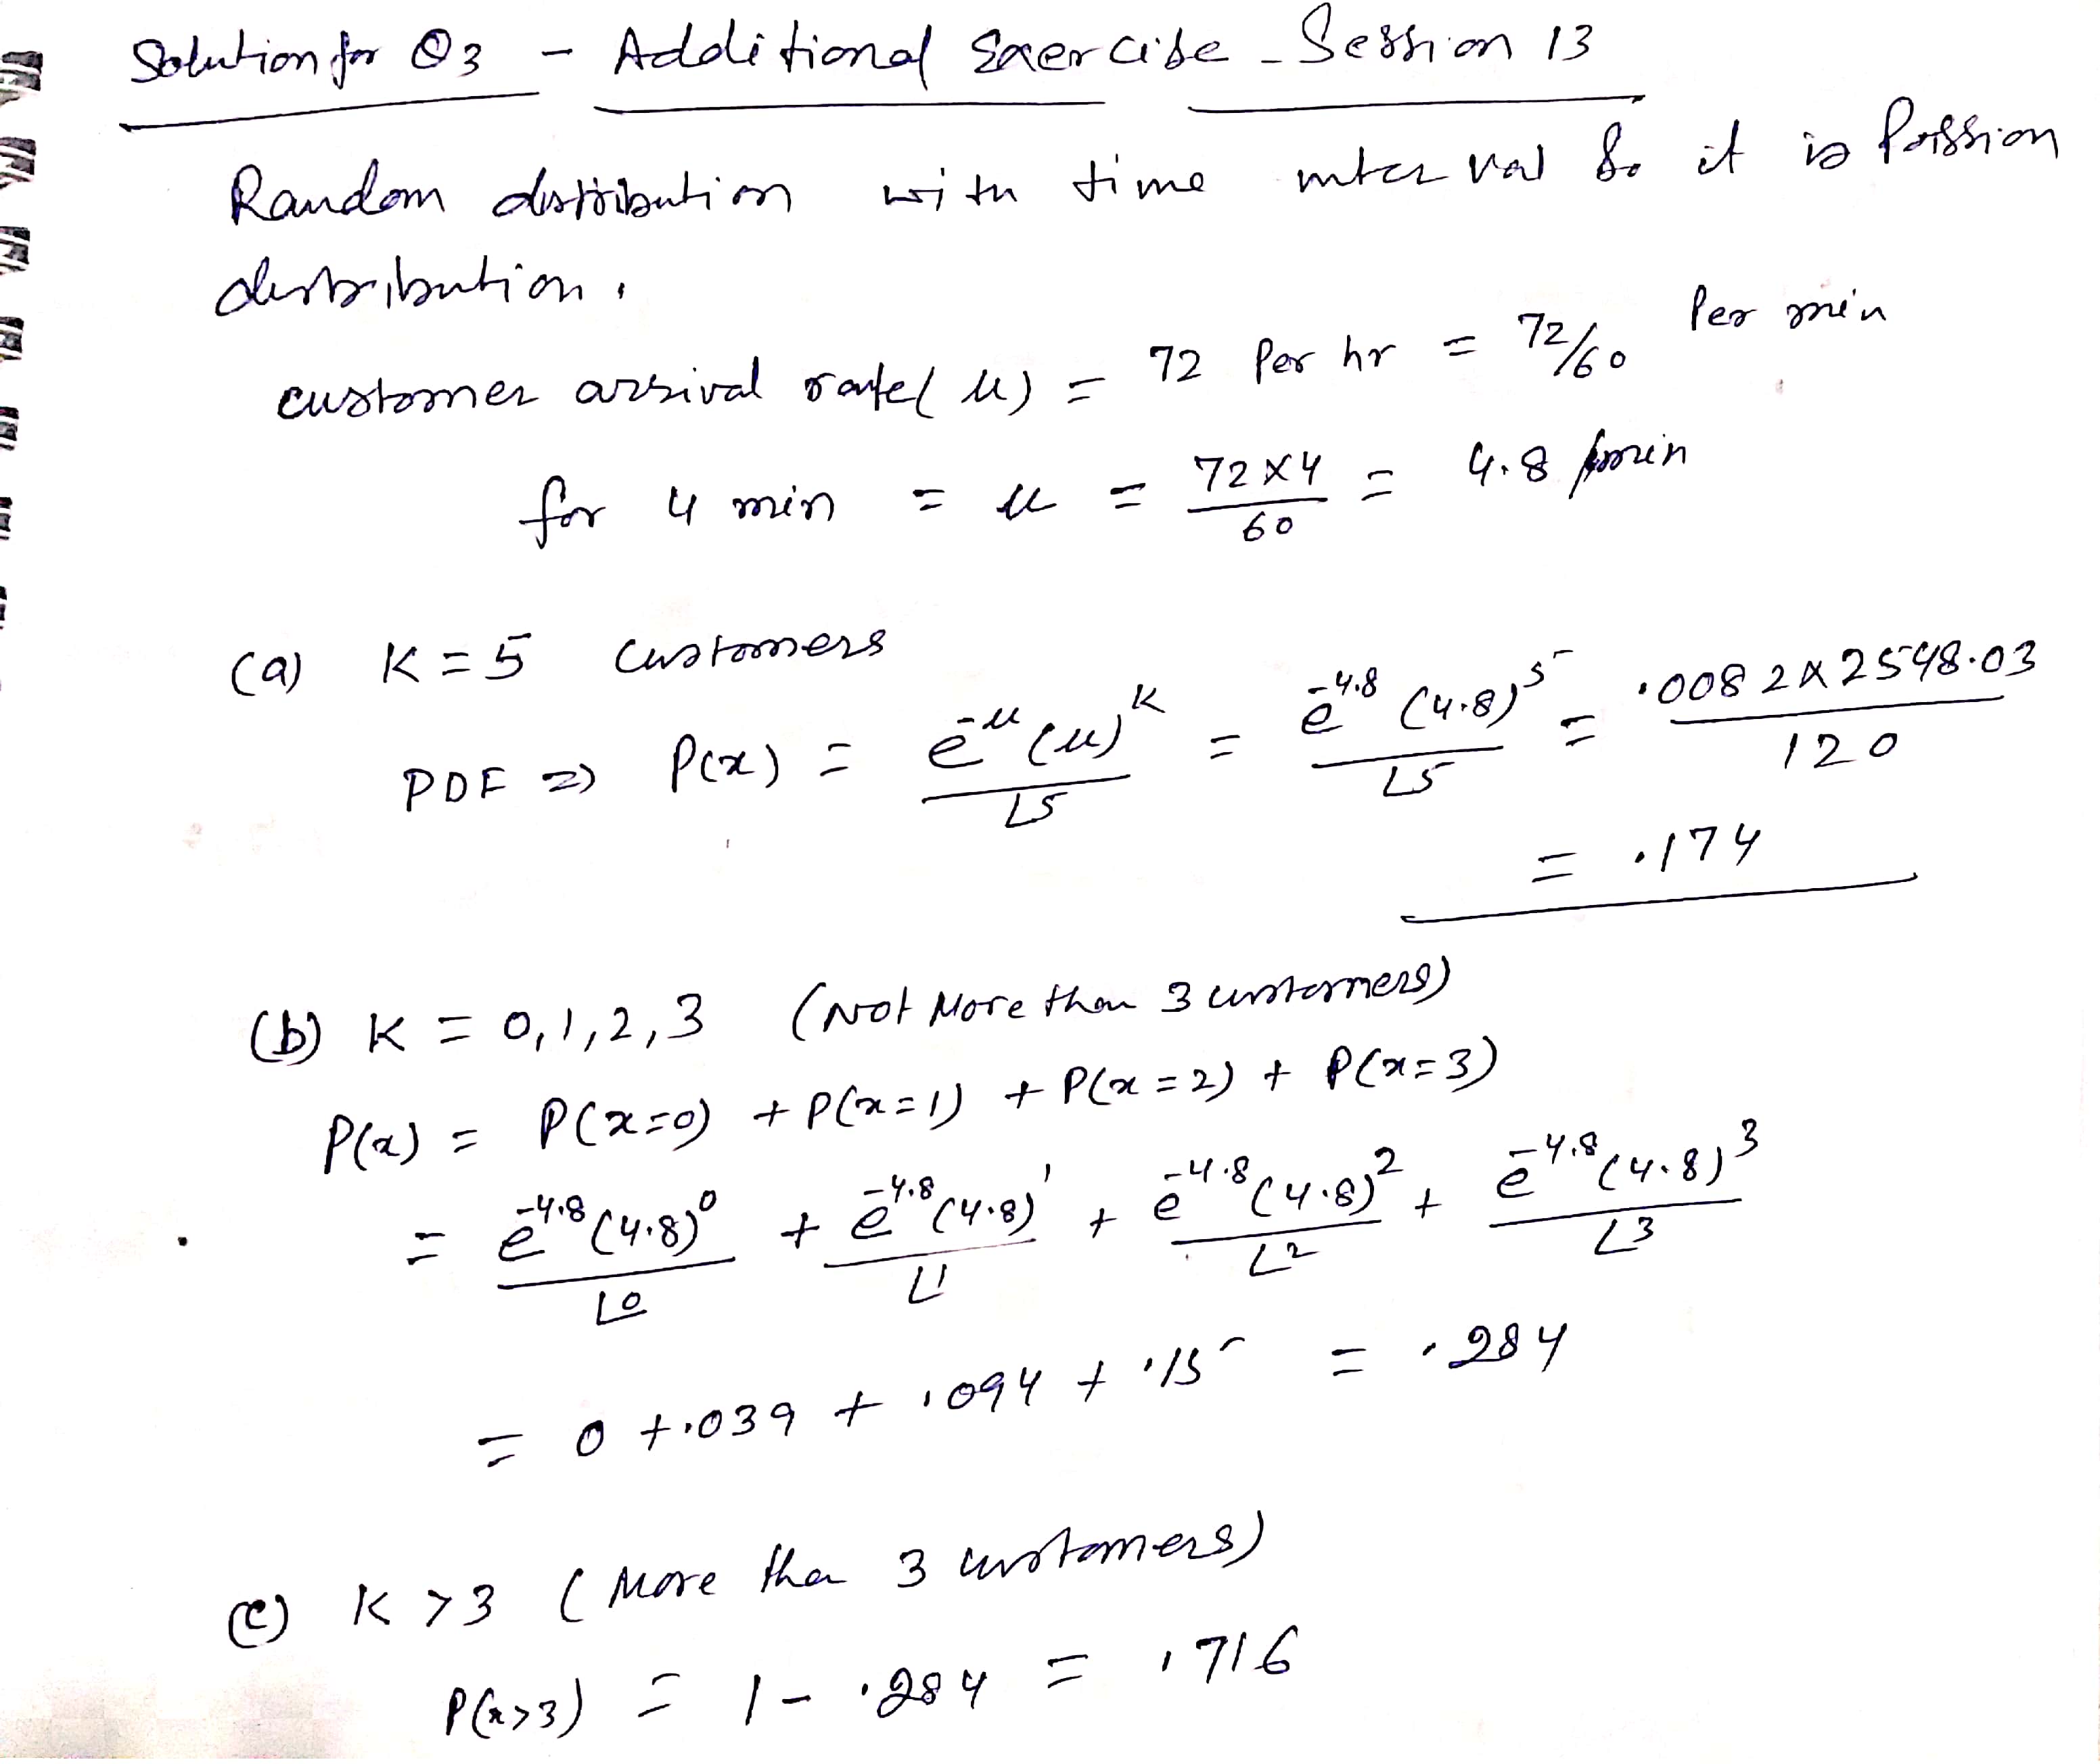 Solution for Q3 - Additional Exercise - Session 13
Random distribution with time interval So it is Poission
distribution.
customer arrival rate( μ) = 72 Per hr = 72/60 Per min
for 4 min = μ = 72 x 4 / 60 = 4.8 /min
(a) K = 5 customers
PDF => P(x) = e^-μ (μ)^K / ⌊5 = e^-4.8 (4.8)^5 / ⌊5 = .0082 x 2548.03 / 120
= .174
(b) K = 0,1,2,3 (Not More than 3 customers)
P(x) = P(x=0) + P(x=1) + P(x=2) + P(x=3)
= e^-4.8 (4.8)^0 / ⌊0 + e^-4.8 (4.8)^1 / ⌊1 + e^-4.8 (4.8)^2 / ⌊2 + e^-4.8 (4.8)^3 / ⌊3
= 0 + .039 + .094 + .15 = .284
(c) K > 3 (More tha 3 customers)
P(x>3) = 1 - .284 = .716